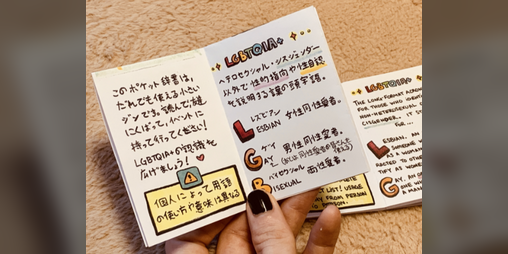 このポケット辞書は、
だれでも使える小さい
ジンです。読んで、友達
にくばって、イベントに
持って行ってください!
LGBTQIA+の認識を
広げましょう!
個人によって用語
の使い方や意味は異なる
LGBTQIA+
ヘテロセクシャル・シスジェンダー
以外で性的指向や性自認
を説明する言葉の頭字語。
レズビアン
LESBIAN 女性同性愛者。
ゲイ
GAY 男性同性愛者。
バイセクシャル
BISEXUAL 両性愛者。
LGBTQIA+
THE LONG-FORM ACRONYM
FOR THOSE WHO IDEN
NON-HETEROSEXUAL O
CISGENDER.
FOR ...
LESBIAN. AN
SOMEONE
AS A WOMAN
RACTED TO
THEY AS
GAY.
OR
LIST! USAGE
VARY FROM PERSON
TO PERSON.